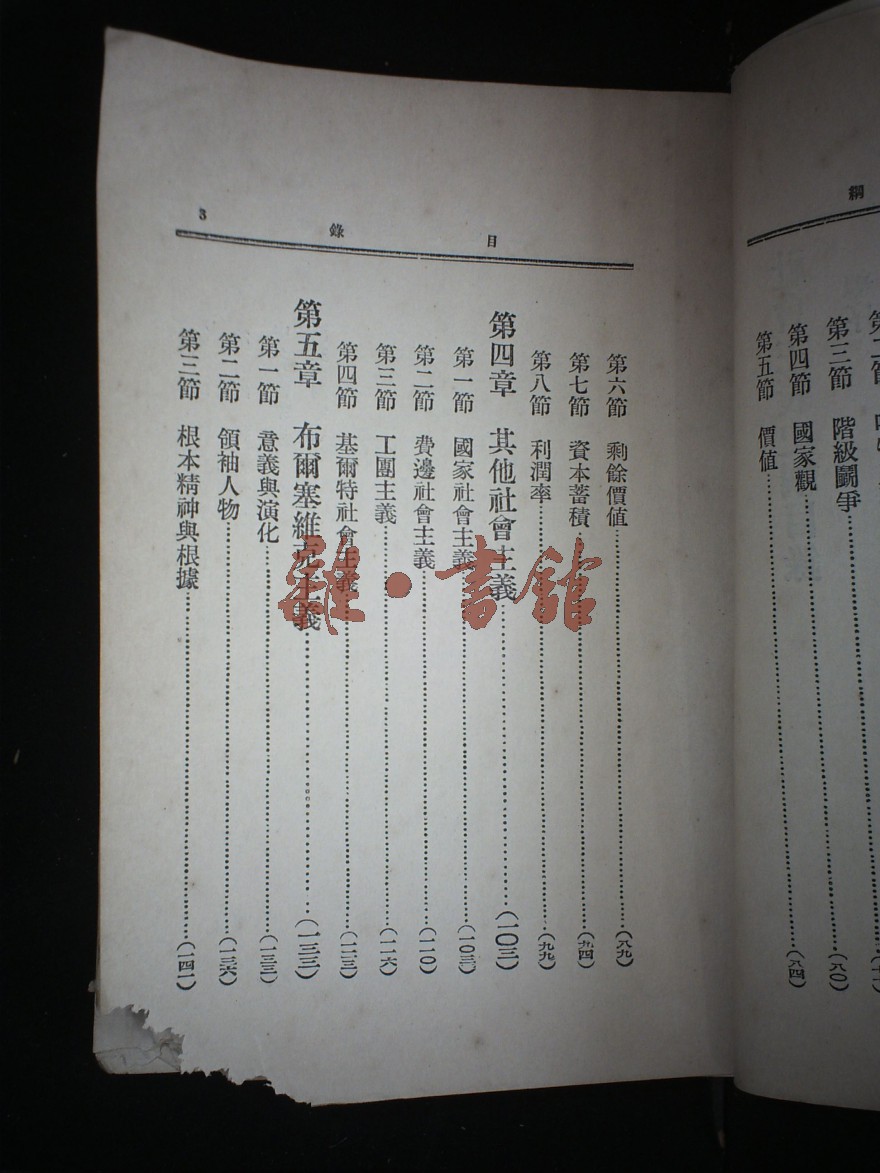 綱
第三節　階級鬭爭……(八〇)
第四節　國家觀……(八四)
第五節　價值……
目錄
3
第六節　剩餘價值……(八九)
第七節　資本蓄積……(九四)
第八節　利潤率……(九九)
第四章　其他社會主義……(一〇三)
第一節　國家社會主義……(一〇三)
第二節　費邊社會主義……(一一〇)
第三節　工團主義……(一一六)
第四節　基爾特社會主義……(一二三)
第五章　布爾塞維克主義……(一三三)
第一節　意義與演化……(一三三)
第二節　領袖人物……(一三六)
第三節　根本精神與根據……(一四一)
雜·書館